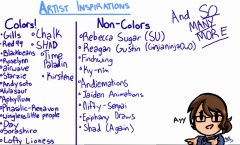 Artist Inspirations
Colors!
•Gills
•Red99
•Blackbeans
•Roselyn
•airwave
•Staraie
•Andysoto
•Aidasaur
•Aphyllium
•Phasilic-Renavon
•wingless little people
•Day
•Sorashiro
•Lofty Lioness
•Chalk
•SHAD
•Time Paladin
•Kirstine
Non-Colors
•Rebecca Sugar (SU)
•Reagan Gustin (ginjaninjaOwO)
•Finchwing
•Ky-nim
•Andiemations
•Jaiden Animations
•Nifty-Senpai
•Epiphany Draws
•Shad (Again)
And SO
MANY
MORE
AYY